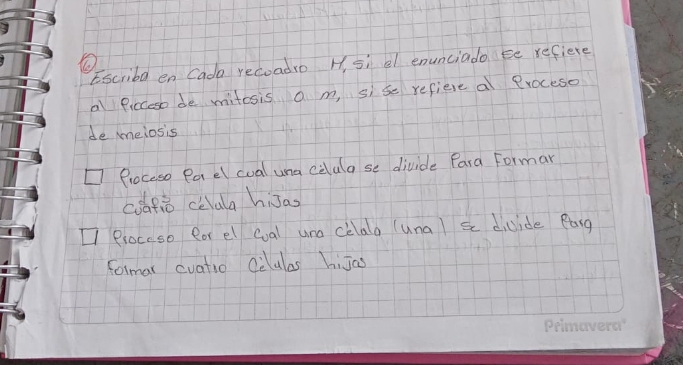 6
Escriba en Cada recuadro H, si el enunciado se refiere
al Proceso de mitosis o m, si se refiere al Proceso
de meiosis
□ Proceso Por el cual una célula se divide Para Formar
célula hijas
□ Proceso Por el cual una célula (una) se divide Para
formar cuatro células hijas
Primavera